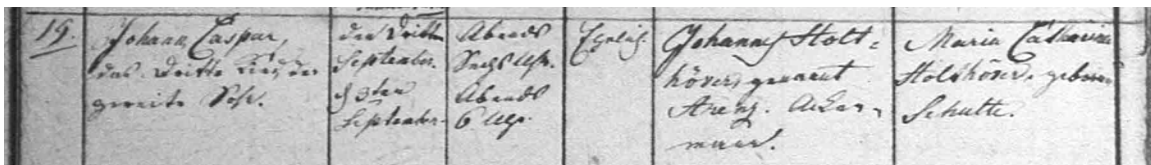 19.
Johann Caspar,
das dritte Kind, der
zweite Sohn.
den Dritten
September.
d 3ten
September.
Abends
Sechs Uhr.
Abends
6 Uhr.
Ehelich.
Johannes Holt=
höver, genannt
Arenz. Acker-
mann.
Maria Catharina
Holthöver, geborne
Schulte.